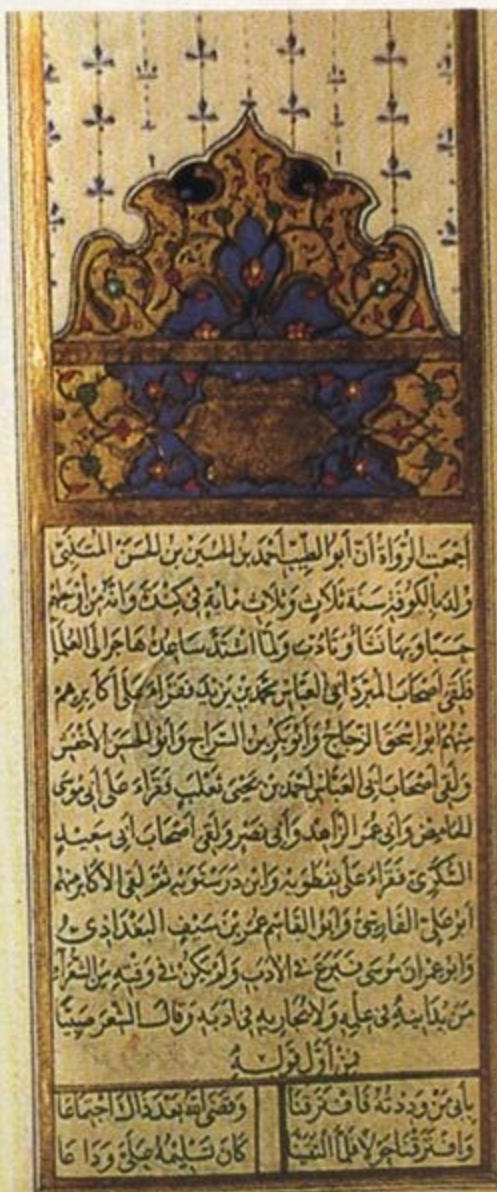 أجمعت الرواة أن أبو الطيب أحمد بن الحسين بن الحسن المتنبي
ولد بالكوفة سنة ثلاث وثلاث مائة في كندة وانه من أوجههم
حسبا وبها نشأ وتأدب ولما اشتد ساعده هاجر الى العلما
فلقى أصحاب المبرد ابى العباس محمد بن يزيد فقراء على أكابرهم
منهم ابو اسحق الزجاج وأبو بكر بن السراج وأبو الحسن الأخفش
ولقى أصحاب ابى العباس احمد بن يحيى ثعلب فقراء على ابى موسى
الحامض وأبى عمر الزاهد وأبى نصر ولقى أصحاب ابى سعيد
السكرى فقراء على نفطويه وابن درستويه ثم لقى الأكابر منهم
أبو على الفارسى وأبو القاسم عمر بن سيف البغدادى
وأبو عمران موسى فبرع في الأدب ولم يكن في وقته من الشعرآء
من يدانيه في علمه ولا يجاريه في ادبه وقال الشعر صبيًا
من أول قوله
بأبى من وددته فافترقنا وقضى الله بعد ذاك اجتماعا
وافترقنا حولا فلما التقينا كان تسليمه على وداعا